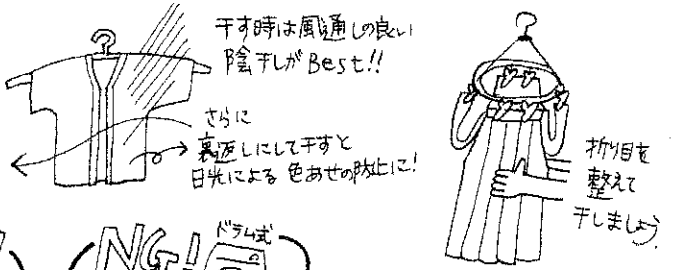 干す時は風通しの良い
陰干しがBest!!
さらに
裏返しにして干すと
日光による色あせの防止に!
折り目を
整えて
干しましょう
NG!
ドラム式